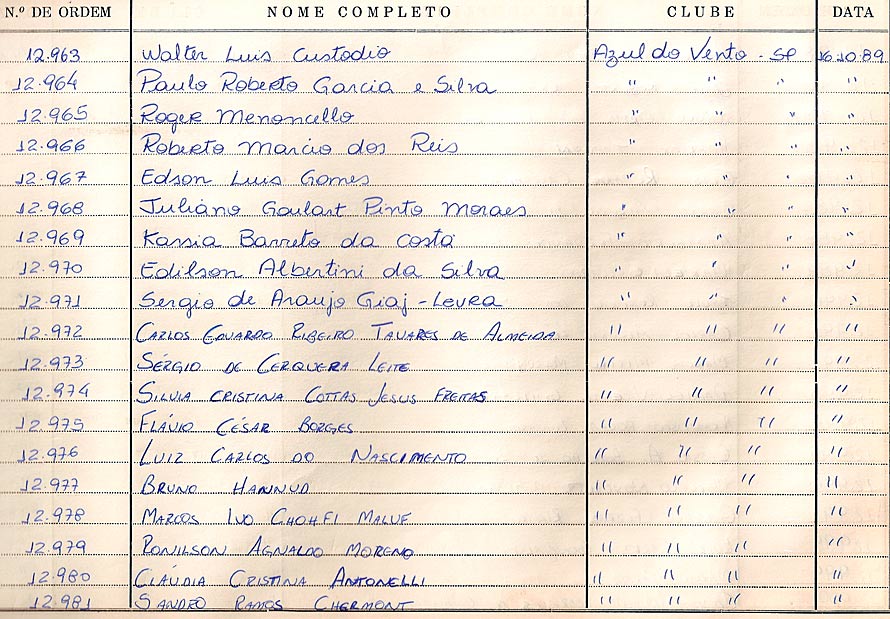 N.º DE ORDEM NOME COMPLETO CLUBE DATA
12.963 Walter Luis Custodio Azul do Vento - SP 16.10.89
12.964 Paulo Roberto Garcia e Silva " " " "
12.965 Roger Menoncello " " " "
12.966 Roberto Marcio dos Reis " " " "
12.967 Edson Luis Gomes " " " "
12.968 Juliano Goulart Pinto Moraes " " " "
12.969 Kassia Barreto da Costa " " " "
12.970 Edilson Albertini da Silva " " " "
12.971 Sergio de Araujo Giaj-Levra " " " "
12.972 CARLOS EDUARDO RIBEIRO TAVARES DE ALMEIDA " " " "
12.973 SÉRGIO DE CERQUERA LEITE " " " "
12.974 SILVIA CRISTINA COTTAS JESUS FREITAS " " " "
12.975 FLÁVIO CÉSAR BORGES " " " "
12.976 LUIZ CARLOS DO NASCIMENTO " " " "
12.977 BRUNO HANNUD " " " "
12.978 MARCOS IVO CHOHFI MALUF " " " "
12.979 RONILSON AGNALDO MORENO " " " "
12.980 CLÁUDIA CRISTINA ANTONELLI " " " "
12.981 SANDRO RAMOS CHERMONT " " " "